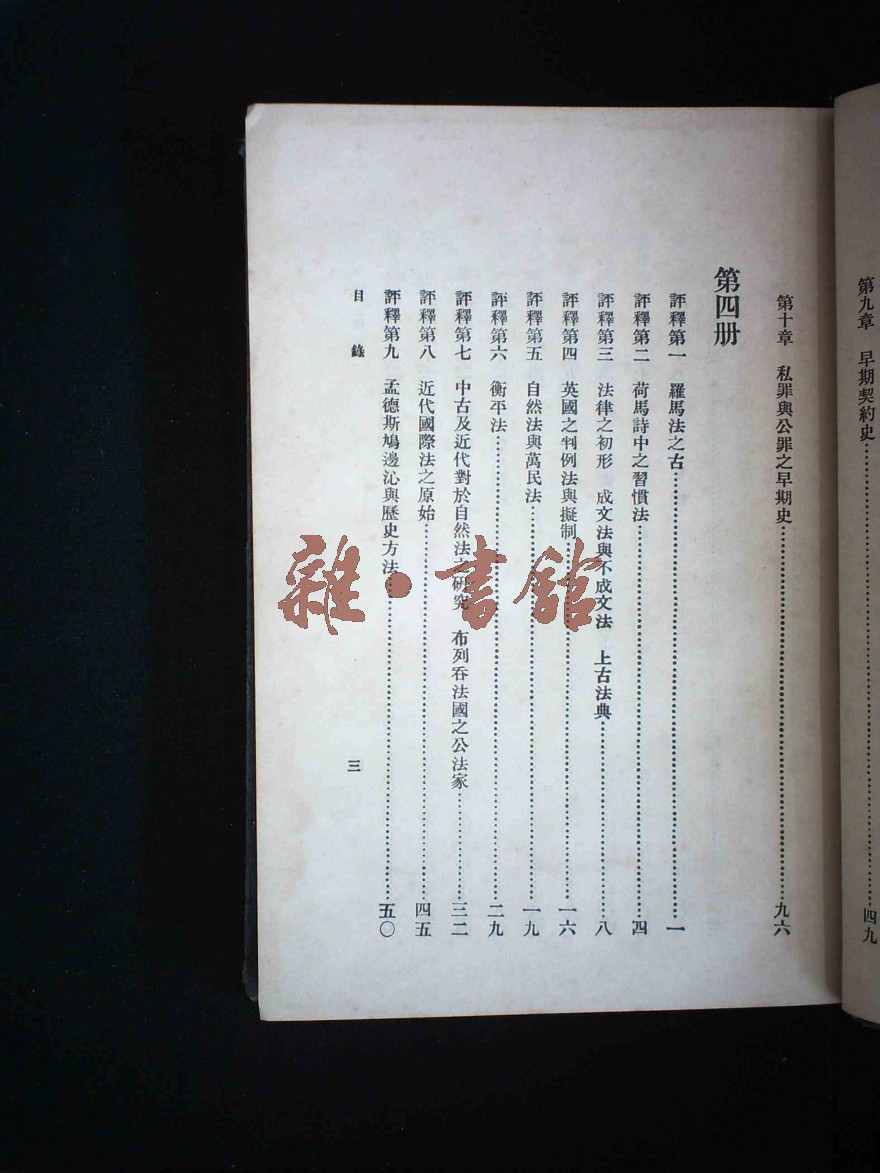 第九章　早期契約史……四九
第十章　私罪與公罪之早期史……九六
第四册
評釋第一　羅馬法之古……一
評釋第二　荷馬詩中之習慣法……四
評釋第三　法律之初形　成文法與不成文法　上古法典……八
評釋第四　英國之判例法與擬制……一六
評釋第五　自然法與萬民法……一九
評釋第六　衡平法……二九
評釋第七　中古及近代對於自然法之研究　布列吞法國之公法家……三二
評釋第八　近代國際法之原始……四五
評釋第九　孟德斯鳩邊沁與歷史方法……五〇
目錄
三
雜·書館